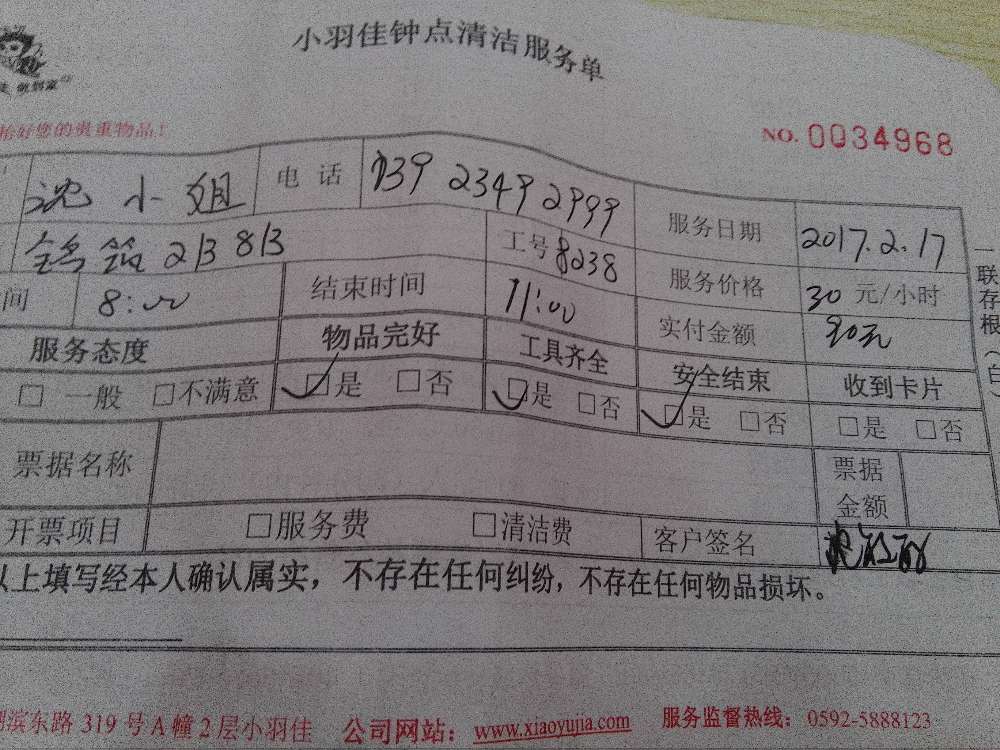 小羽佳钟点清洁服务单
做到家
好您的贵重物品！
NO. 0034968
沈小姐 电话 139 2349 2999 服务日期 2017.2.17
2B 8B 工号 8238 服务价格 30 元/小时
间 8:00 结束时间 11:00 实付金额 90元
服务态度 物品完好 工具齐全 安全结束 收到卡片
□ 一般 □不满意 □是 □否 □是 □否 □是 □否 □是 □否
票据名称 票据金额
开票项目 □服务费 □清洁费 客户签名
以上填写经本人确认属实，不存在任何纠纷，不存在任何物品损坏。
一联存根（白）
滨东路 319 号 A 幢 2 层小羽佳 公司网站：www.xiaoyujia.com 服务监督热线：0592-5888123